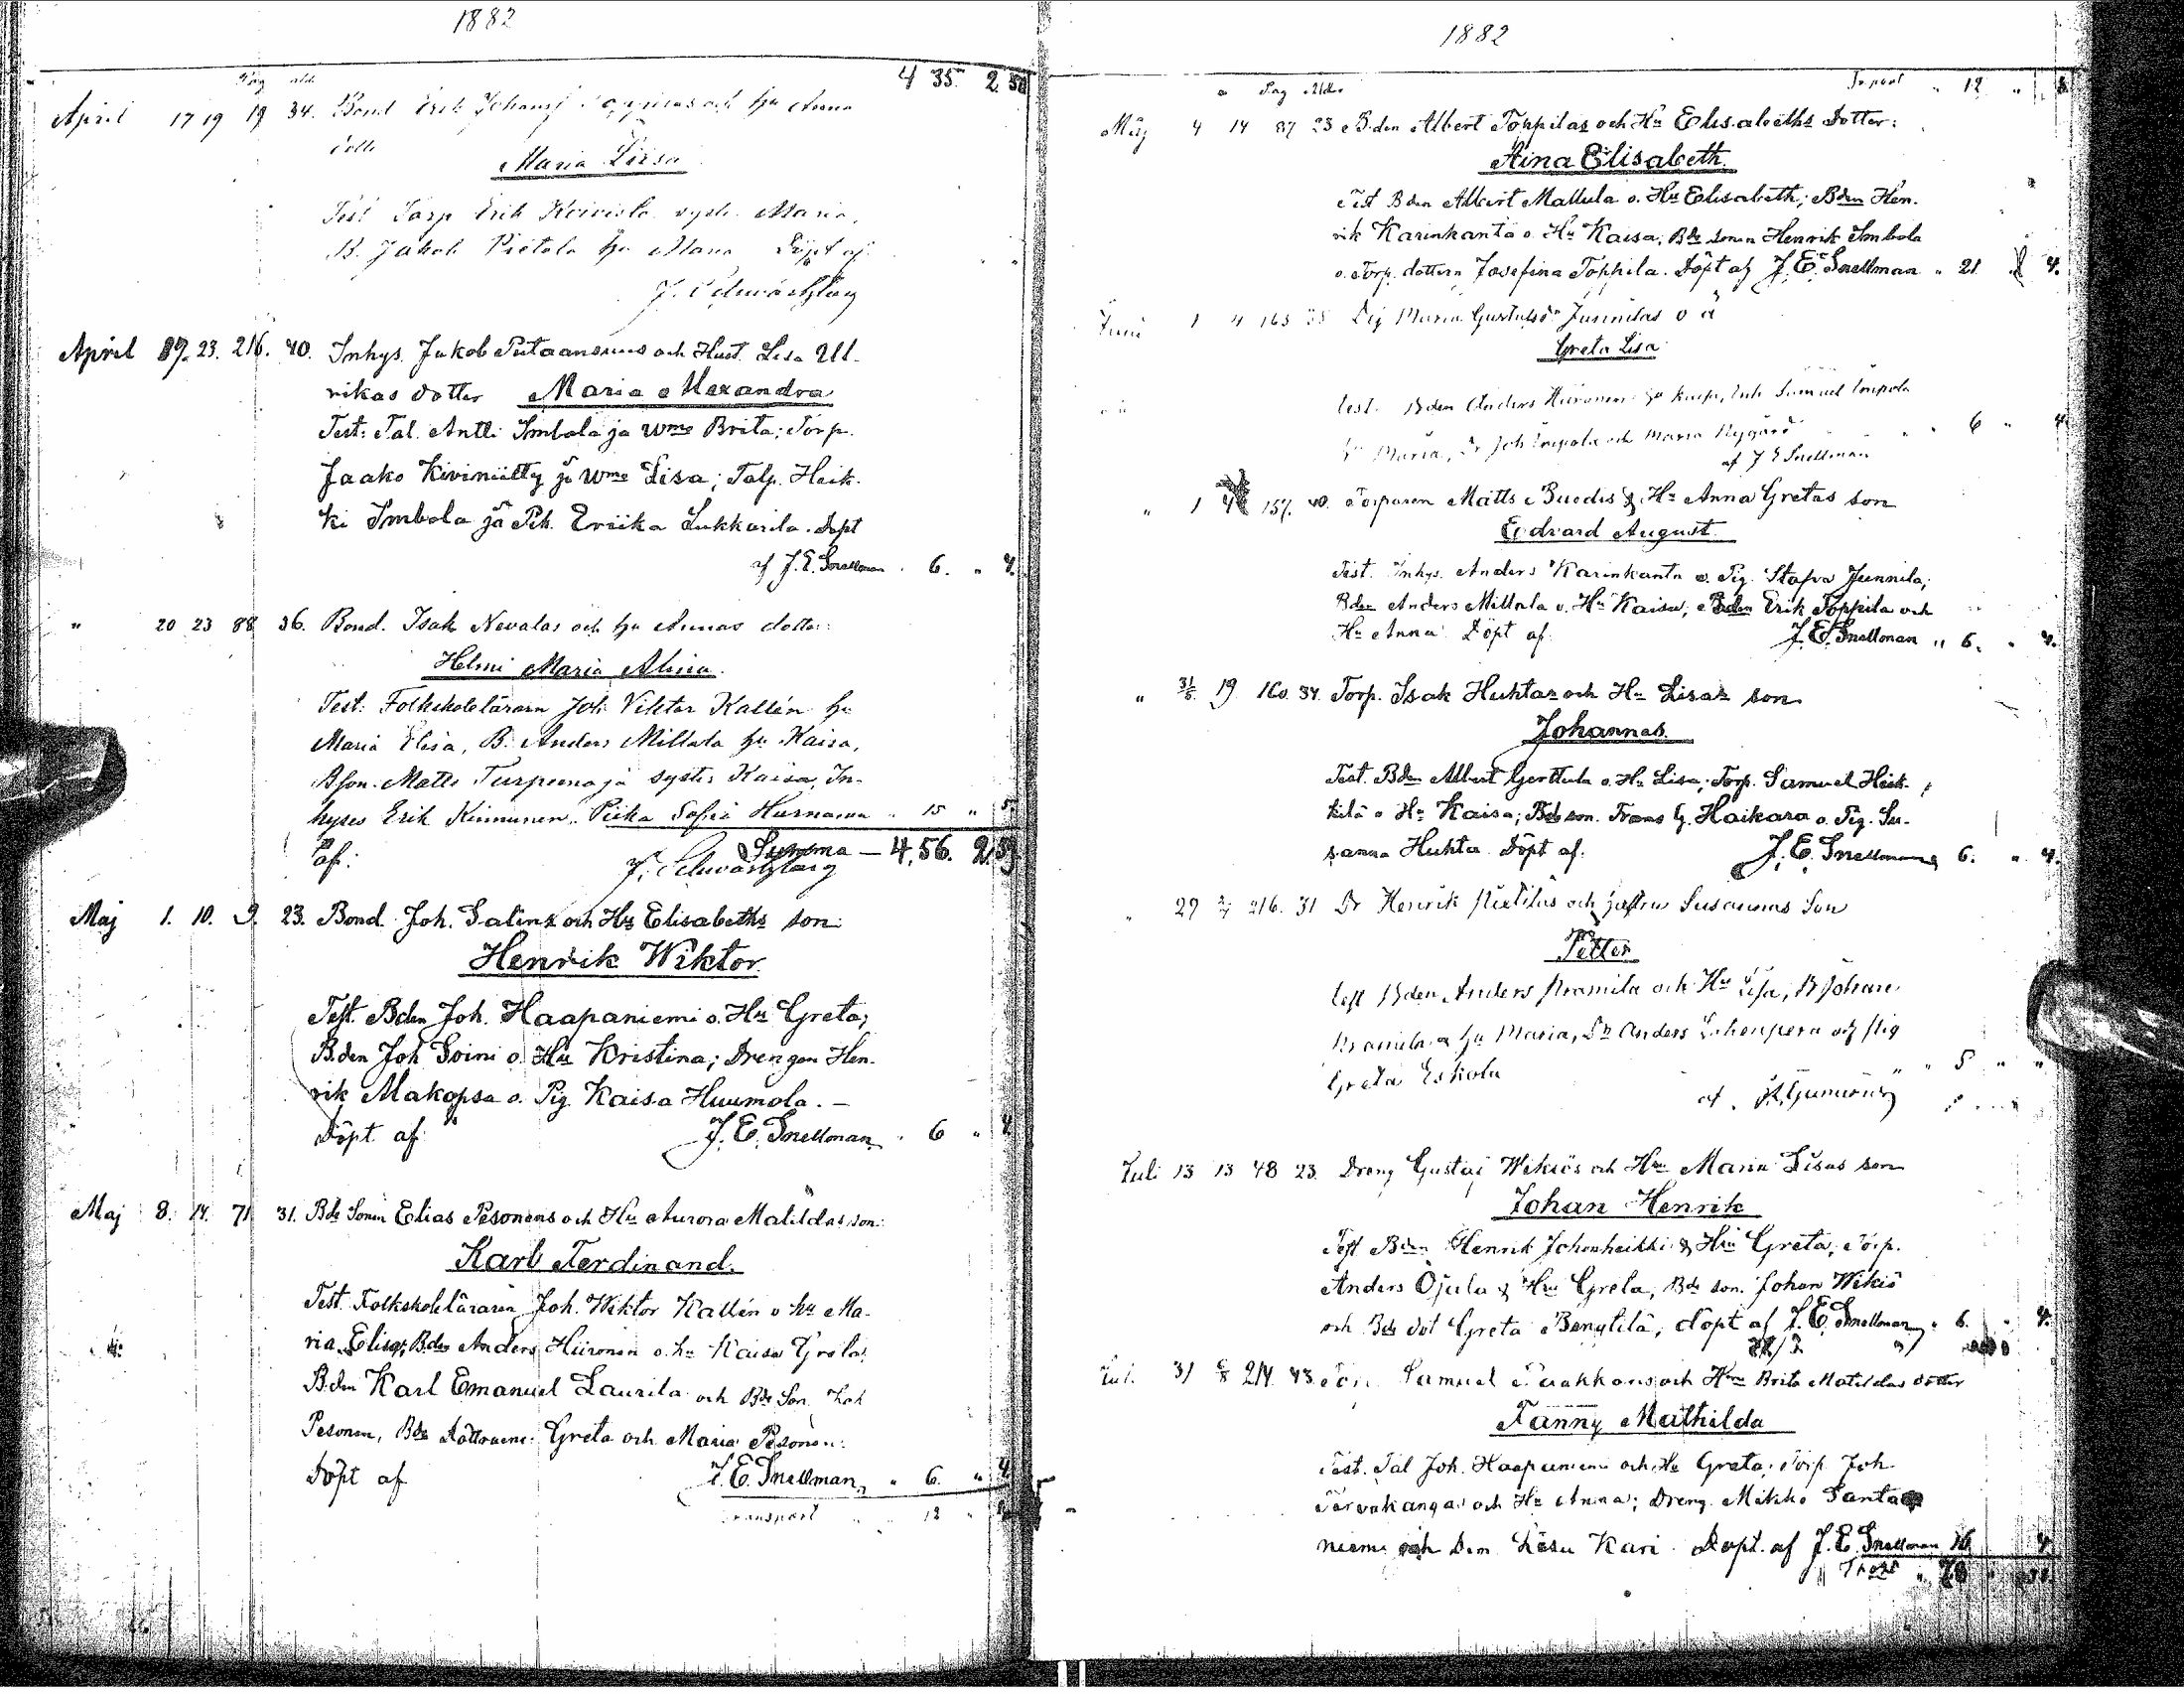 1882
Pag ald. 4 35. 2 50
April 17 19 19 34. Bond Erik och hu Anna
dotte
Maria Liisa
Test Torp Erik Koivisto syst. Maria,
B. Jakob Pietola hu Maria Döpt af
J. Schwartzberg
April 19. 23. 216. 40. Inhys. Jakob Putaansuus och Hust. Lisa Ul-
rikas dotter Maria Alexandra
Test: Tal. Antti Imbola ja Wmo Brita; Torp.
Jaako Kiviniitty ja Wmo Lisa; Talp. Heik-
ki Imbola ja Pik. Eriika Lukkarila. Döpt
af J. E. Snellman " 6. " 4.
" 20 23 88 36. Bond. Isak Nevalas och hu Annas dotter:
Helmi Maria Alina.
Test: Folkskoleläraren Joh. Viktor Kallén hu
Maria Elisa, B. Anders Millola hu Kaisa,
Bson. Matts Turpeenoja syster Kaisa, In-
hyses Erik Kinnunen, Piika Sofia Hurnanen " 15 " 5.
af: Summa — 4,56. 2,59
J. Schwartzberg
Maj 1. 10. 9. 23. Bond. Joh. Salins och Hu Elisabeths son:
Henrik Wiktor.
Test. Bden Joh. Haapaniemi o. Hu Greta;
Bden Joh Soini o. Hu Kristina; Drengen Hen-
rik Makopsa o. Pig. Kaisa Huumola. —
Döpt af: J. E. Snellman " 6 " 4.
Maj 8. 14. 71 31. Bde Sonen Elias Pesonens och Hu Aurora Matildas son:
Karl Ferdinand.
Test. Folkskoleläraren Joh. Wiktor Kallén o hu Ma-
ria Elisa; Bden Anders Hiironen o. hu Kaisa Greta;
Bden Karl Emanuel Laurila och Bde Son. Joh
Pesonen, Bde Döttrarne: Greta och Maria Pesonen:
Döpt af J. E. Snellman " 6. " 4
Transport " 12 "
1882
Pag Ald. Transport " 12 " 8.
Maj 4 14 87 23 Bden Albert Toppilas och Hu Elisabeths Dotter:
Aina Elisabeth.
Test Bden Albert Mallula o. Hu Elisabeth; Bden Hen-
rik Karinkanta o. Hu Kaisa; Bde sonen Henrik Imbola
o. Torp. dottern Josefina Toppila. Döpt af J. E. Snellman " 21 4.
Juni 1 4 163 28 Pig Maria Gustafsdr Junnilas o ä
Greta Lisa
test. Bden Anders Hiironen hu Kaisa, Inh Samuel Impola
hu Maria, Dr Joh Impola och Maria Nygård " " 6 " 4
af J E Snellman
" 1 4 157. 40. Torparen Matts Buodis & Hu Anna Gretas son
Edvard August
Test. Inhys. Anders Karinkanta o. Pig. Stafva Junnila;
Bden Anders Millola o. Hu Kaisa; Bden Erik Toppila och
Hu Anna Döpt af J. E. Snellman " 6. " 4.
" 31/5. 19. 160. 34. Torp. Isak Huhtas och Hu Lisas son
Johannes.
Test. Bden Albert Gerttula o. Hu Lisa; Torp. Samuel Heik-
kilä o Hu Kaisa; Bde son. Frans G. Haikara o. Pig. Su-
sanna Huhta. Döpt af: J. E. Snellman 6. " 4.
" 29 2/7 216. 31 Dr Henrik och hustru Susannas Son
Petter
Test Bden Anders Kramila och Hu Lisa, B Johan
Kramila & hu Maria, Dr Anders och Pig
Greta Eskola " " 5 " "
af
Juli 13 13 48 23. Dreng Gustaf Wikiös och Hu Maria Lisas son
Johan Henrik
Test Bden Henrik Johonheikki & Hu Greta; Torp.
Anders Ojala & Hu Greta, Bde son. Johan Wikiö
och Bde dot Greta Bengtilä; döpt af J. E. Snellman " 6. " 4.
Jul. 31 6/8 214. 43. Torp. Samuel Paakkos och Hu Brita Matildas dotter
Fanny Mathilda
Test. Tal Joh. Haapaniemi och Hu Greta; Torp. Joh.
Tervakangas och Hu Anna; Dreng. Mikko Santa
niemi och Dem. Lisu Kari. Döpt af J. E. Snellman 16 4.
" 78 "